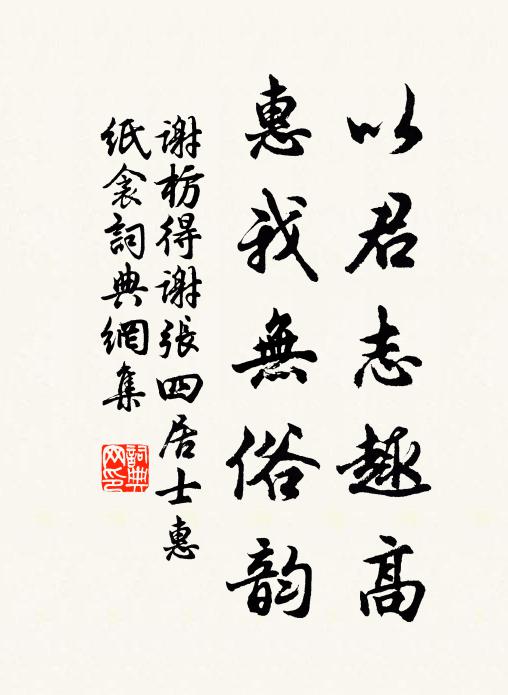 以君志趣高
惠我無俗韵
谢枋得谢張四居士惠
紙衾詞典網集
詞典
网印